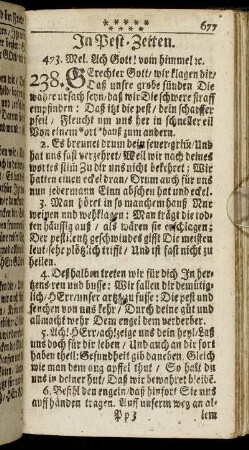 677
In Pest-Zeiten.
473. Mel. Ach Gott! vom himmel ꝛc.
238. GErechter Gott/ wir klagen dir/
Daß unsre grobe sünden Die
wahre ursach seyn/ daß wir Die schwere straff
empfinden: Daß itzt die pest/ dein scharffer
pfeil/ Fleucht um uns her in schneller eil
Von einem ort hauß zum andern.
2. Es brennet drum dein feuer-grim̃/ Und
hat uns fast verzehret/ Weil wir nach deines
wortes stim̃ Zu dir uns nicht bekehret; Wir
hatten einen eckel dran/ Drum auch für uns
nun jedermann Einn abscheu hat und eckel.
3. Man höret in so manchem hauß Nur
weinen und wehklagen: Man trägt die todten
häuffig auß/ als wären sie erschlagen:
Der pestilentz geschwindes gifft Die meisten
leut/ sehr plötzlich trifft/ Und ist fast nicht zu
heilen.
4. Deßhalben treten wir für dich In hertzens
reu und busse: Wir fallen dir demütiglich/
HErr/ unser artzt/ zu fusse: Die pest und
seuchen von uns kehr/ Durch deine güt und
allmacht wehr Dem engel dem verderber.
5. Ach! HErr/ ach! zeige uns dein hertz/ Laß
uns doch für dir leben/ Und auch an dir
haben theil: Gesundheit gib daneben. Gleich
wie man dem aug apffel thut/ So halt du
uns in deiner hut/ Daß wir bewahret bleiben.
6. Befihl den engeln/ daß hinfort Sie uns
auff händen tragen. Auff unserm weg an al-
Pp 3 lem